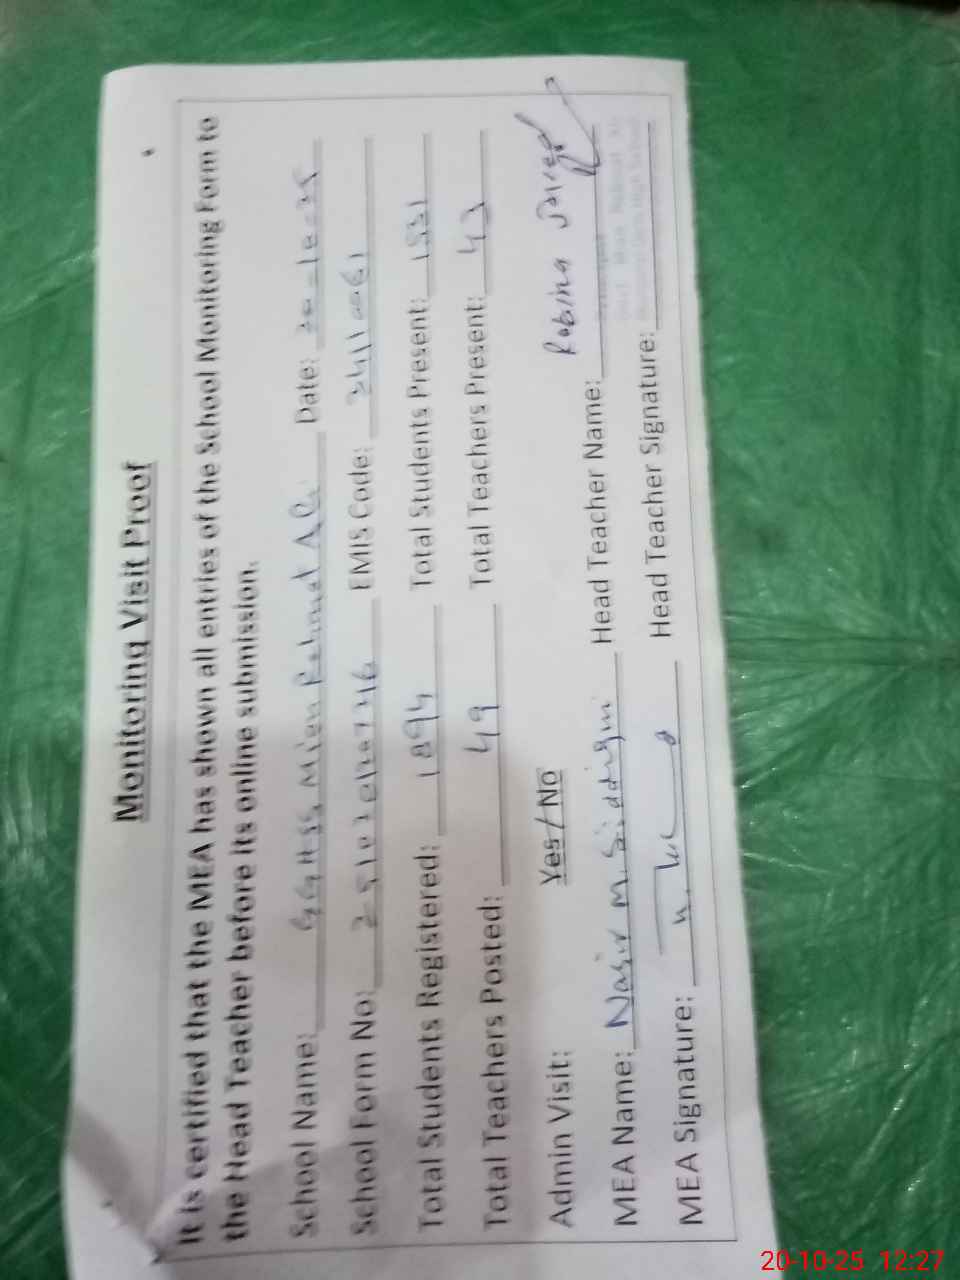 Monitoring Visit Proof
It is certified that the MEA has shown all entries of the School Monitoring Form to
the Head Teacher before its online submission.
School Name: GGHSS Mian Rehmat Ali Date: 20-10-25
School Form No: EMIS Code:
Total Students Registered: 1894 Total Students Present: 1531
Total Teachers Posted: 49 Total Teachers Present: 43
Admin Visit: Yes/No
MEA Name: Nasir M. Siddiqui Head Teacher Name: Robina
MEA Signature: Head Teacher Signature:
20-10-25 12:27